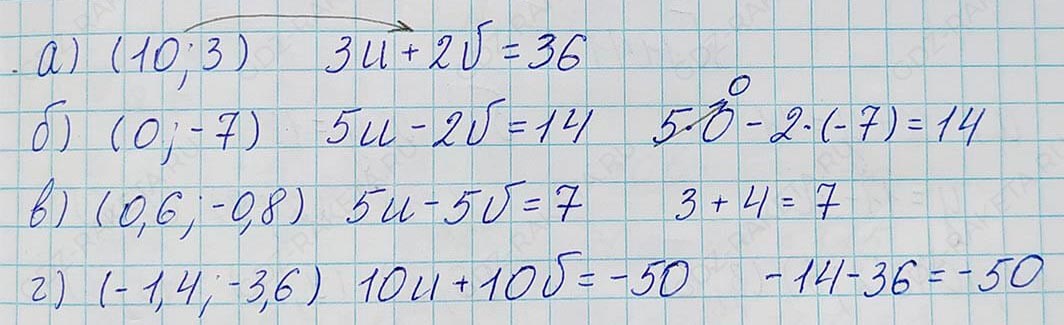 а) (10; 3) 3u + 2v = 36
б) (0; -7) 5u - 2v = 14 5·0 - 2·(-7) = 14 0
в) (0,6; -0,8) 5u - 5v = 7 3 + 4 = 7
г) (-1,4; -3,6) 10u + 10v = -50 -14 - 36 = -50